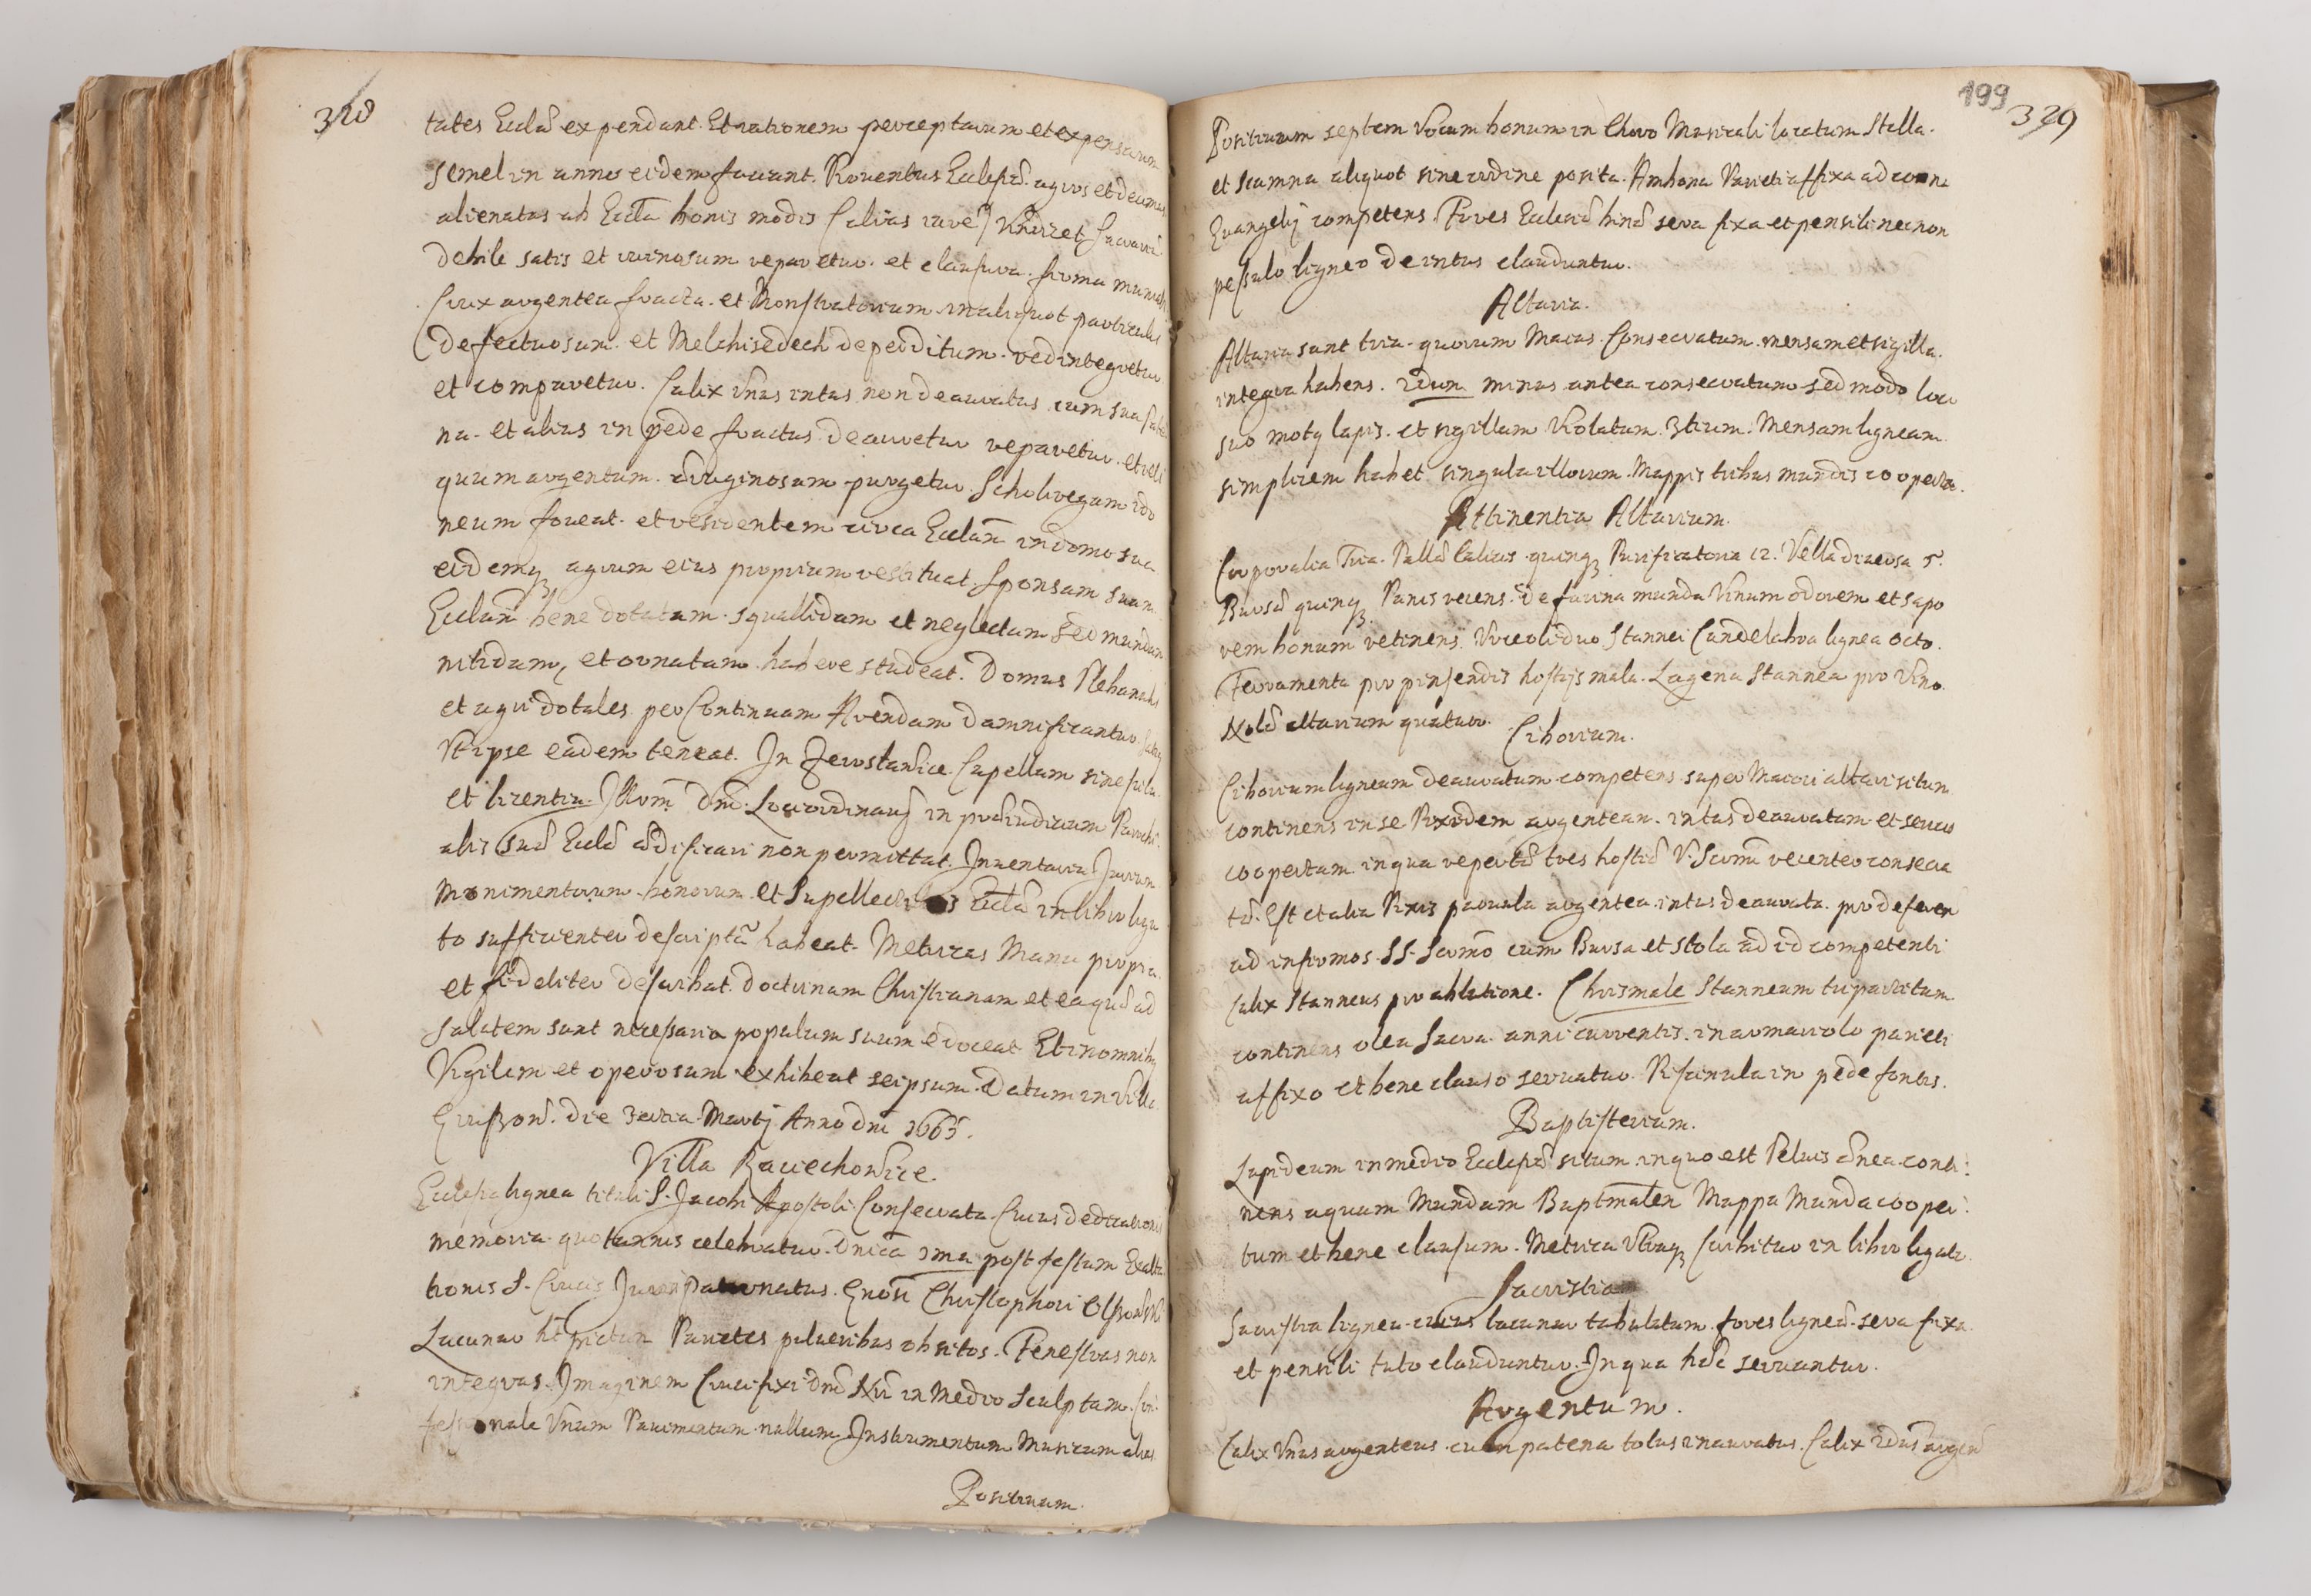 328
tates Eccłae expendant. Et rationem perceptarum et expensarum
semel in anno eidem faciant. Proventus Ecclesiae agros et decimas
alienatas ab Eccła bonis modis (alias iure) Vindicet Sacrariũ
debile satis et ruinosum reparetur. et clausura firma muniatur
Crux argentea fracta. et Monstratorium in aliquot particulis
defectuosum. et Melchisedech deperditum. redintegretur
et comparetur. Calix Unus intus non deauratus cum sua pate
na. et alius in pede fractus deauretur reparetur. et reli
quum argentum. aeruginosum purgetur. Scholiregam ido
neum foveat. et residentem circa Ecclam̃ in domo sua
eidemq3 agrum eius proprium restituat. Sponsam suam
Ecclam̃ bene dotatam. squallidam et neglectam sed mundam
nitidam, et ornatam habere studeat. Domus Plebanalis
et agri dotales per Continuam Arendam damnificantur.
Ut ipse eadem teneat. In Zerostawice Capellam sine scitu
et licentia Illrm̃i Dñi Locioordinarij in praeiudicium Parochi
alis suae Ecclae aedificari non permittat. Inventaria Iurium
monimentorum bonorum et Supellectilis Ecclae in libro liga
to sufficienter descripta habeat. Metricas Manu propria.
et fideliter describat. doctrinam Christianam et ea quae ad
salutem sunt necessaria populum suum edoceat Et in omnibus
Vigilem et operosum exhibeat seipsum. Datum in Villa
die 3tia Martij Anno dñi 1665.
Villa Raciechowice.
Ecclesia lignea tituli S. Jacobi Apostoli. Consecrata. Cuius dedicationis
memoria quotannis celebratur. Dñica 1ma post festum Exalta
tionis S. Crucis Juris patronatus. Gnosi Christophori
Lacunar ht̃ pictum Parietes pulveribus obsitos. Fenestras non
integras. Imaginem Crucifixi dñi Nri in Medio sculptam. Con
fessionale Unum Pavimentum nullum Instrumentum Musicum alias
Positivum.
199
329
Positivum septem Vocum bonum in Choro Musicali locatum Stalla.
et scamna aliquot sine ordine posita. Ambona Parieti affixa ad cornu
Evangelij competens. Fores Ecclesiae binae sera fixa et pensili necnon
pessulo ligneo deintus clauduntur.
Altaria.
Altaria sunt tria. quorum Maius. Consecratum mensam et sigilla.
integra habens. 2dum minus antea consecratum sed modo loco
suo motq lapis. et sigillum Violatum. 3tium. Mensam ligneam
simplicem habet singula illorum. Mappis tribus mundis cooperta.
Attinentia Altarium.
Corporalia Tria. Pallae Calicis quinq3 Purificatoria 12. Vella diversa 5.
Bursae quinq3 Panis recens. de farina munda Vinum odorem et sapo
rem bonum retinens. Urceoli duo Stannei Candelabra lignea octo.
Ferramenta pro pinsendis hostijs mala. Lagena Stannea pro Vino.
Nolae altarium quatuor.
Ciborium.
Ciborium ligneum deauratum competens super Maiori altari situm
continens in se Pixidem argenteam. intus deauratam et serico
coopertam in qua repertae tres hostiae V. Scrm̃i recenter consecra
tae. Est et alia Pixis parvula argentea intus deaurata. pro deferen
ad infirmos SS. Scrm̃o cum Bursa et stola ad id competenti
calix Stanneus pro ablutione. Chrismale Stanneum tripartitum
continens olea Sacra anni currentis. in armariolo parieti
affixo et bene clauso servatur. Piscinula in pede fontis.
Baptisterium.
Lapideum in medio Ecclesiae situm in quo est Pelvis aenea conti:
nens aquam Mundam Baptm̃alem Mappa Munda cooper:
tum et bene clausum. Metrica Utraq3 scribitur in libro ligato.
Sacristia
Sacristia lignea cuius lacunar tabulatum. fores ligneae sera fixa
et pensili tuto clauduntur. In qua haec servantur.
Argentum.
Calix Unus argenteus cum patena totus inauratus. Calix 2dus argen